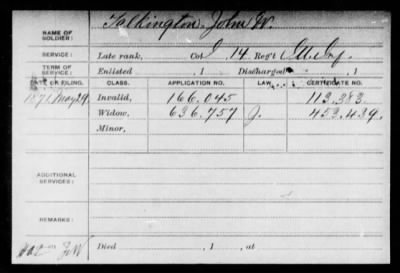 Talkington, John W.
NAME OF SOLDIER:
SERVICE: Late rank, Co. I 14 Reg't Ill. Inf.
TERM OF SERVICE: Enlisted , 1 Discharged , 1
DATE OF FILING. CLASS. APPLICATION NO. LAW. CERTIFICATE NO.
1871 May 29, Invalid, 166.045 113.383
Widow, 636.757 J. 453.439.
Minor,
ADDITIONAL SERVICES:
REMARKS:
Died , 1 , at